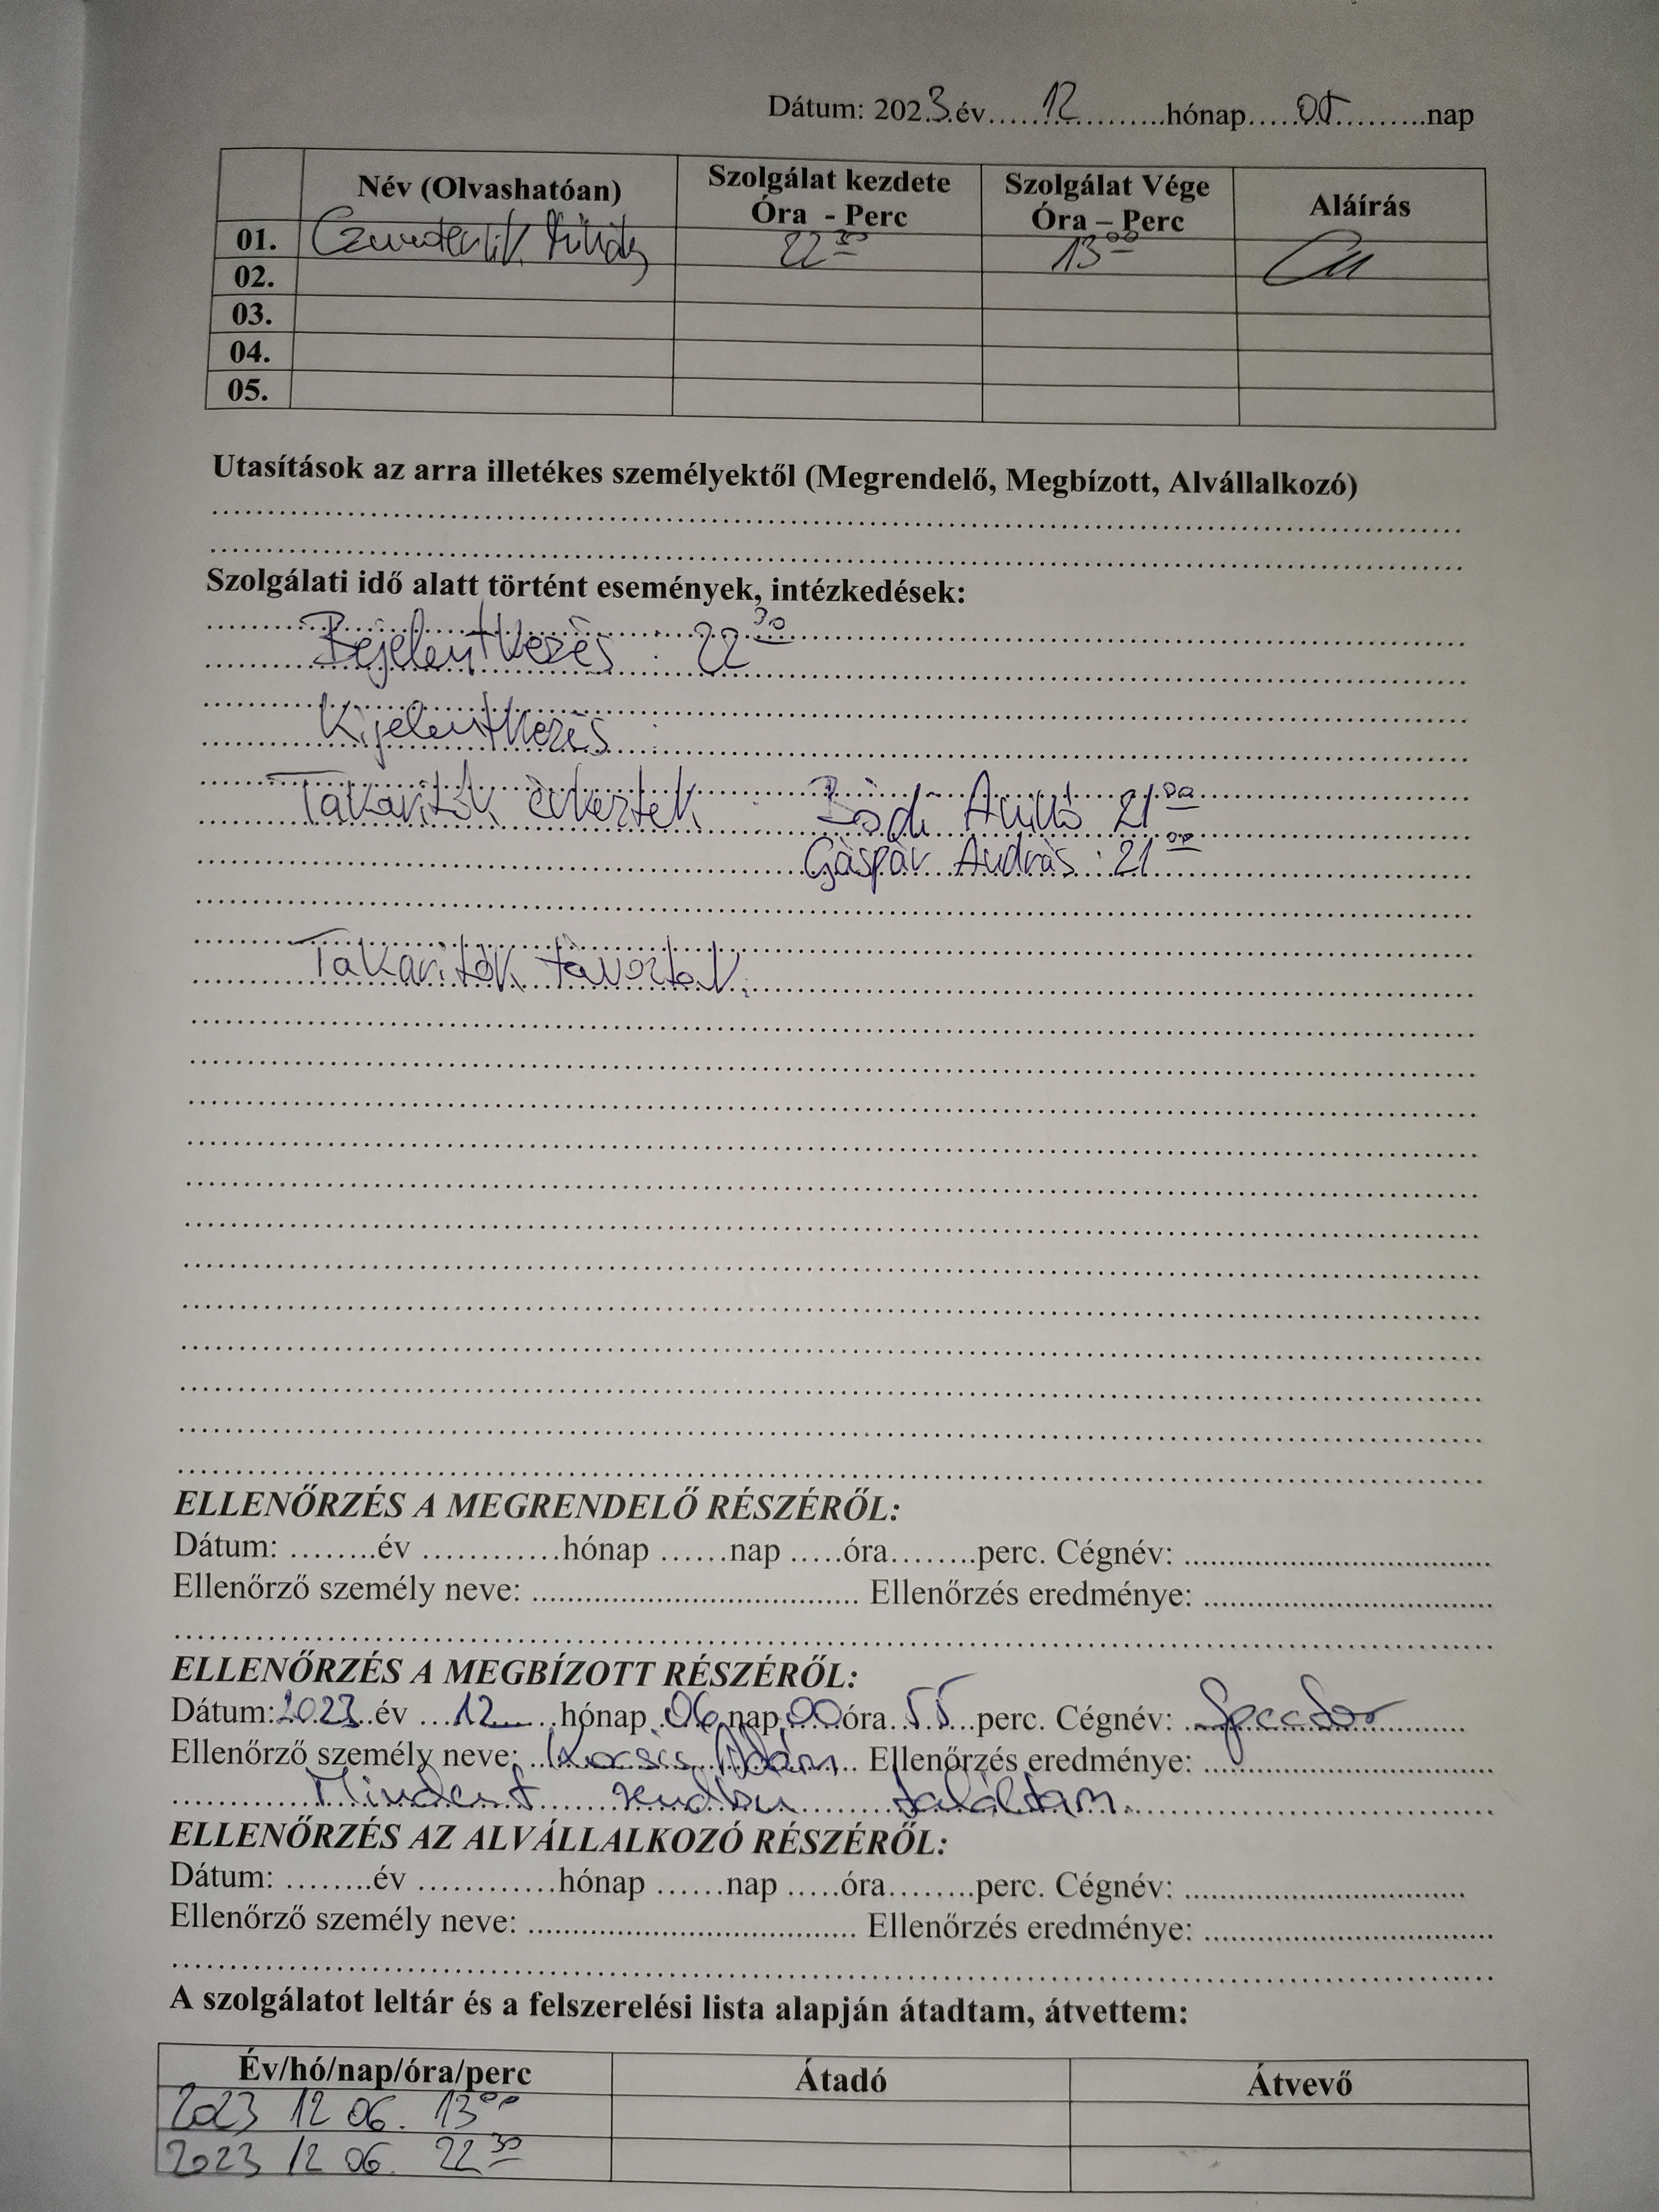 Dátum: 2023 év 12 hónap 05 nap
Név (Olvashatóan) Szolgálat kezdete Óra - Perc Szolgálat Vége Óra – Perc Aláírás
01. 22 30 13 00
02.
03.
04.
05.
Utasítások az arra illetékes személyektől (Megrendelő, Megbízott, Alvállalkozó)
Szolgálati idő alatt történt események, intézkedések:
Bejelentkezés : 22 30
Kijelentkezés :
Takarítók érkeztek : Bódi 21 00
Gáspár András : 21 00
Takarítók távoztak:
ELLENŐRZÉS A MEGRENDELŐ RÉSZÉRŐL:
Dátum: ........év ............hónap ......nap .....óra........perc. Cégnév: ..............................
Ellenőrző személy neve: .................................... Ellenőrzés eredménye: ..............................
ELLENŐRZÉS A MEGBÍZOTT RÉSZÉRŐL:
Dátum: 2023 év 12 hónap 06 nap 00 óra 55 perc. Cégnév:
Ellenőrző személy neve: Kocsis Ádám Ellenőrzés eredménye:
Mindent rendben találtam.
ELLENŐRZÉS AZ ALVÁLLALKOZÓ RÉSZÉRŐL:
Dátum: ........év ............hónap ......nap .....óra........perc. Cégnév: ..............................
Ellenőrző személy neve: .................................... Ellenőrzés eredménye: ..............................
A szolgálatot leltár és a felszerelési lista alapján átadtam, átvettem:
Év/hó/nap/óra/perc Átadó Átvevő
2023 12 06. 13 00
2023 12 06. 22 30